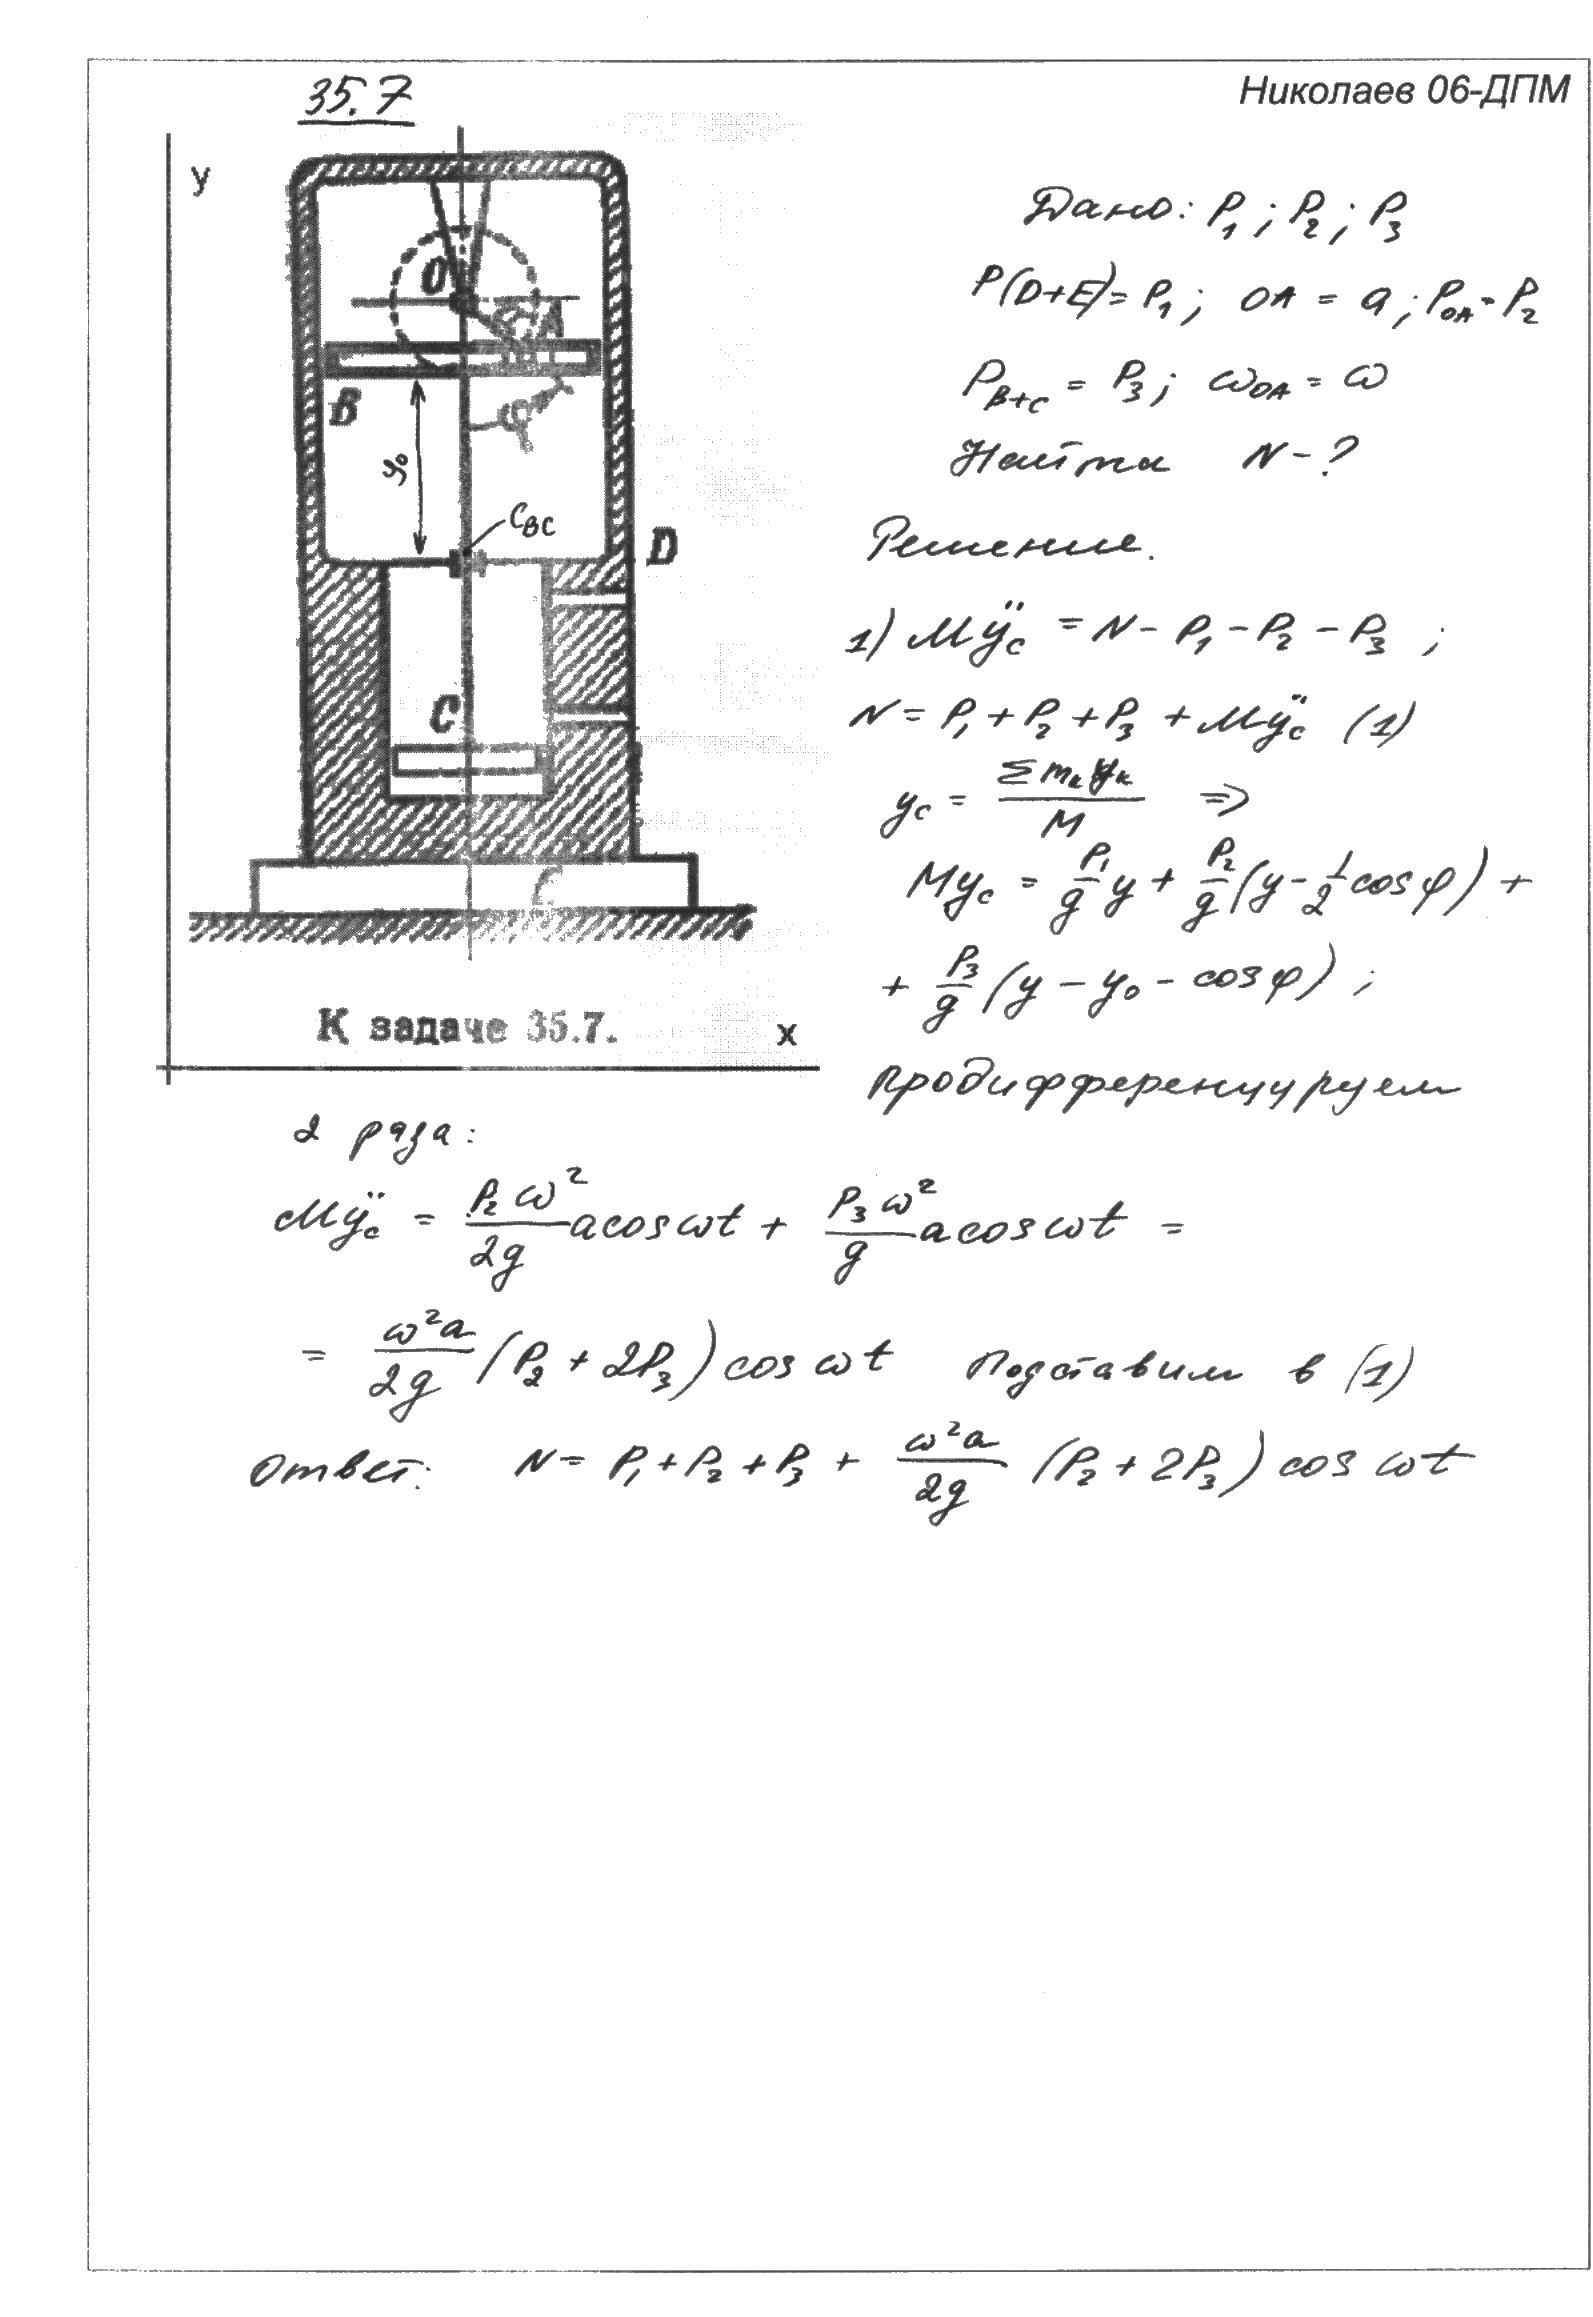 35.7
Николаев 06-ДПМ
y
O
A
B
φ
y₀
C_BC
D
C
E
К задаче 35.7.
x
Дано: P₁; P₂; P₃
P(D+E)=P₁; OA = a; P_OA - P₂
P_B+C = P₃; ω_OA = ω
Найти N-?
Решение.
1) Mÿ_c = N - P₁ - P₂ - P₃ ;
N = P₁ + P₂ + P₃ + Mÿ_c (1)
y_c = Σm_k y_k / M ⇒
My_c = P₁/g y + P₂/g (y - 1/2 cos φ) +
+ P₃/g (y - y₀ - cos φ) ;
продифференцируем
2 раза:
Mÿ_c = P₂ω²/2g a cos ωt + P₃ω²/g a cos ωt =
= ω²a/2g (P₂ + 2P₃) cos ωt Подставим в (1)
Ответ: N = P₁ + P₂ + P₃ + ω²a/2g (P₂ + 2P₃) cos ωt